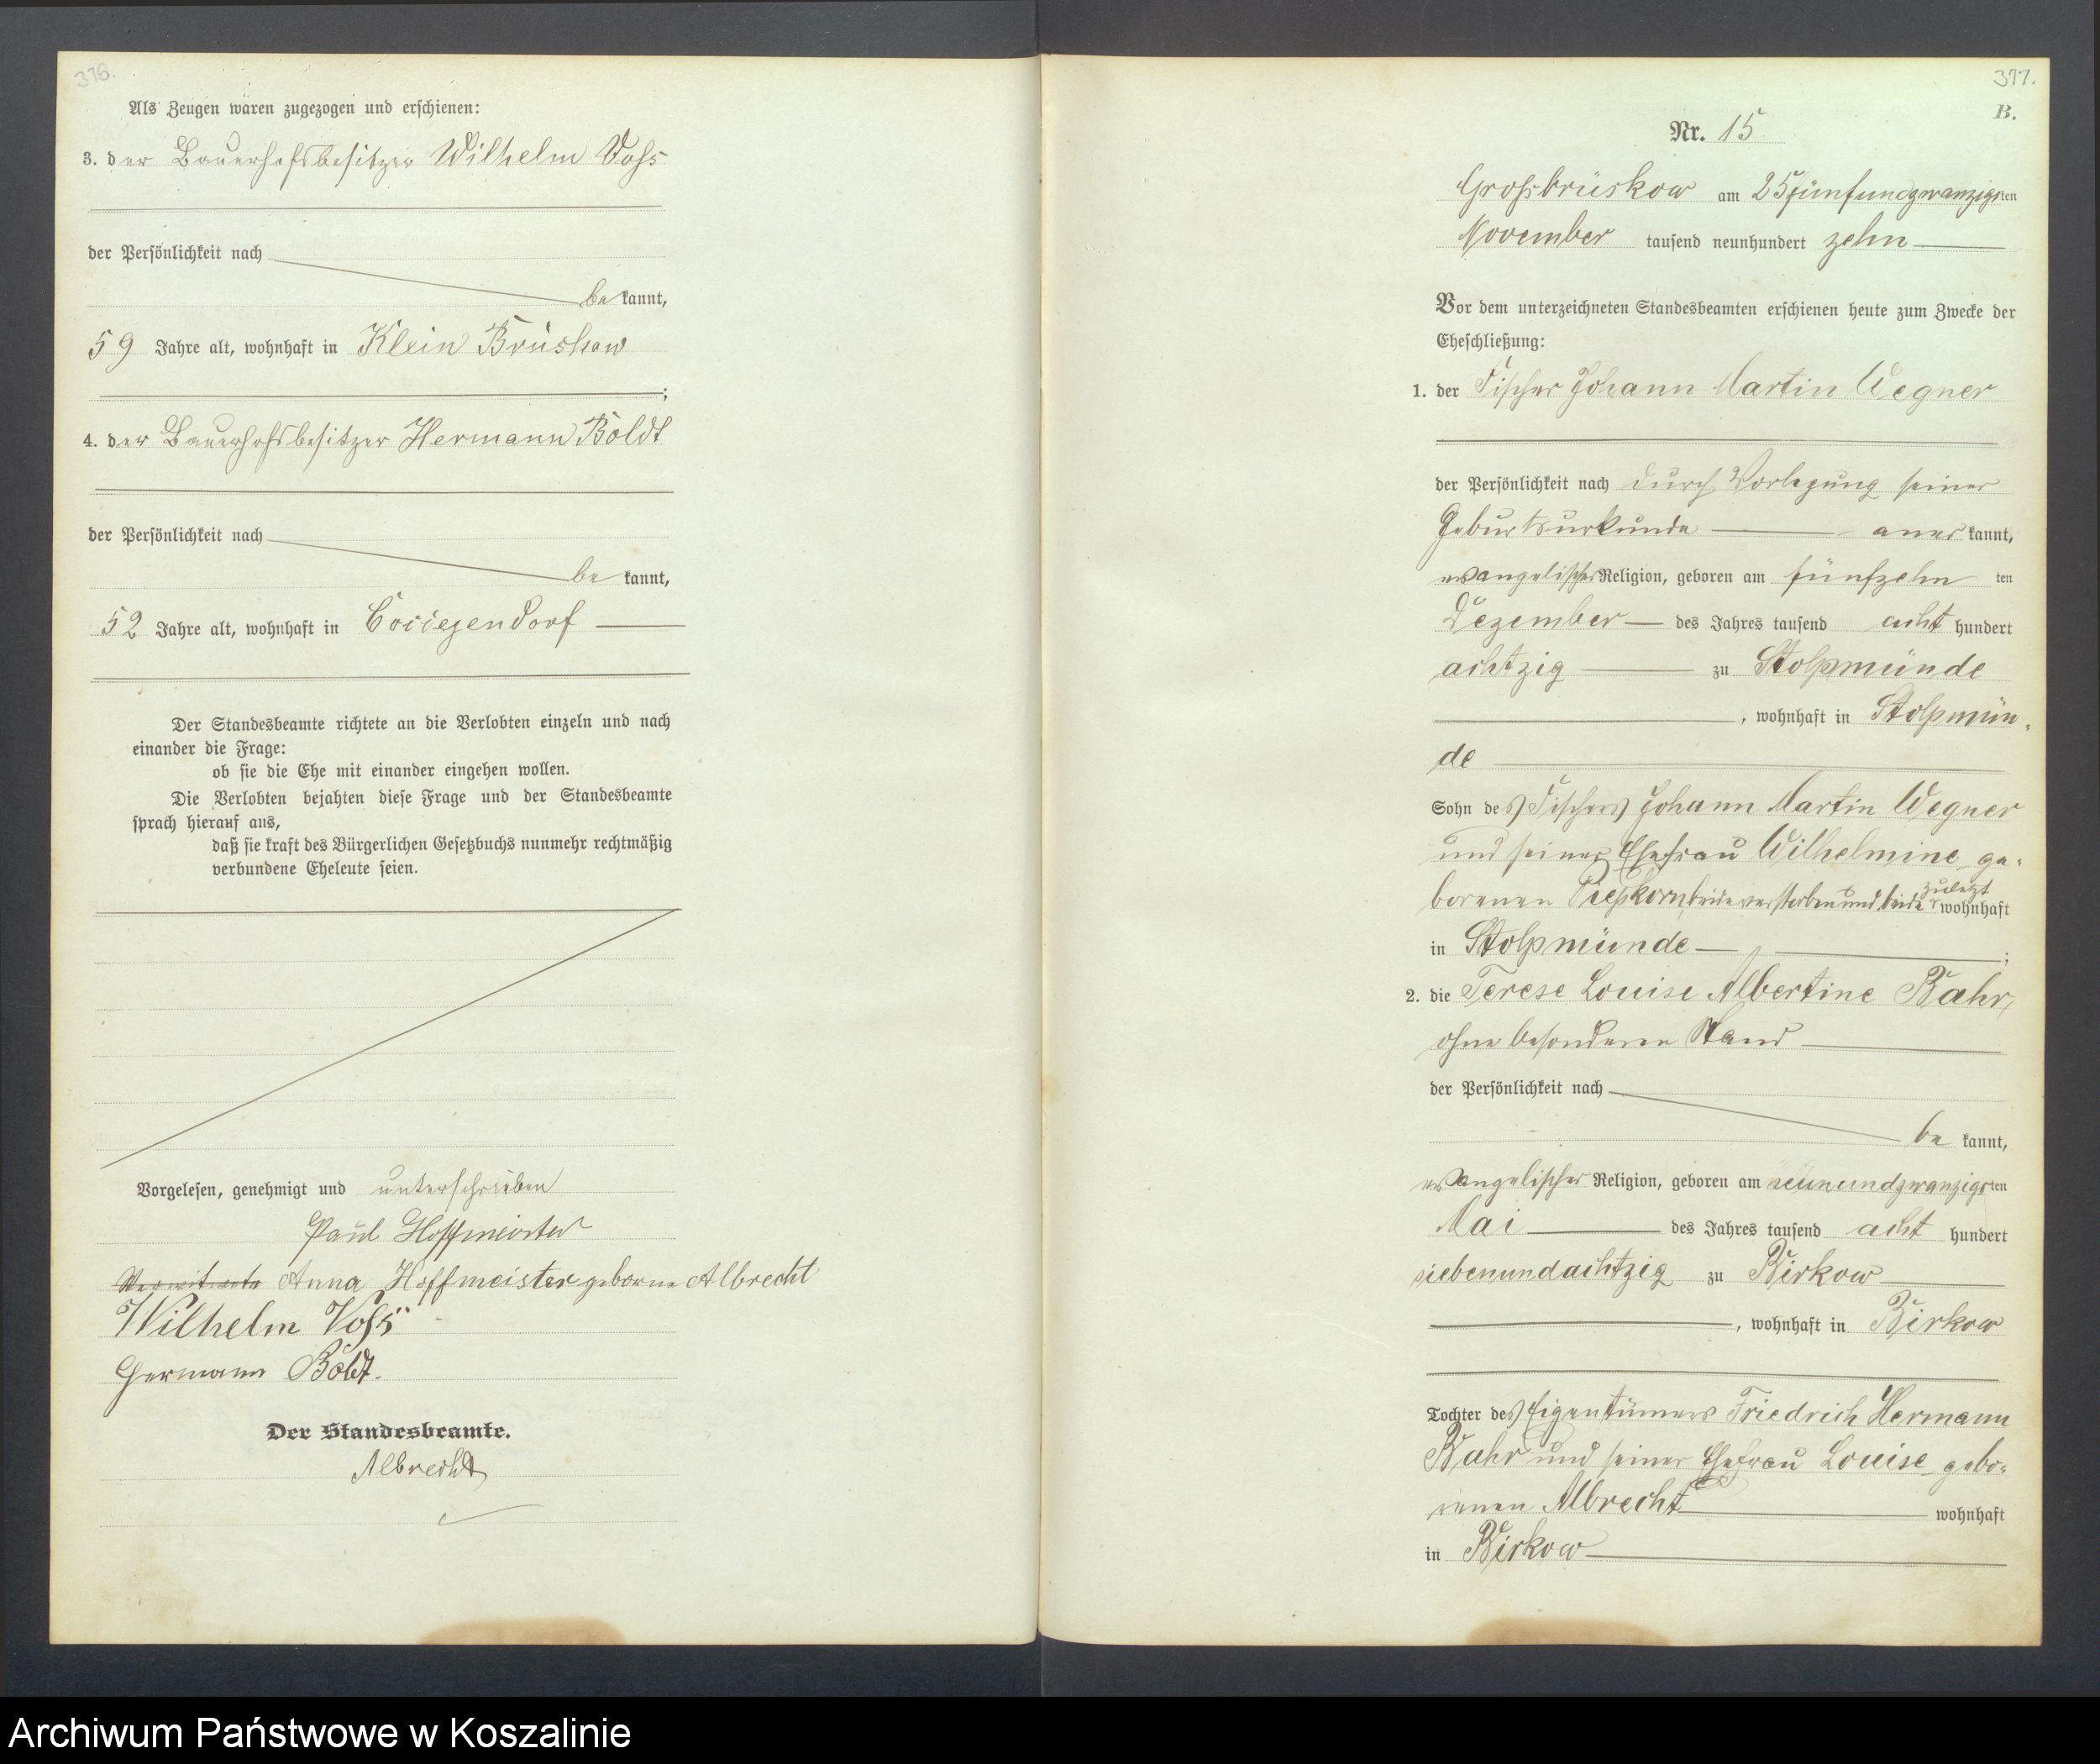 376.
Als Zeugen waren zugezogen und erschienen:
3. der Bauerhofsbesitzer Wilhelm Voß
der Persönlichkeit nach
bekannt,
59 Jahre alt, wohnhaft in Klein Brüskow
;
4. der Bauerhofsbesitzer Hermann Boldt
der Persönlichkeit nach
bekannt,
52 Jahre alt, wohnhaft in
Der Standesbeamte richtete an die Verlobten einzeln und nach
einander die Frage:
ob sie die Ehe mit einander eingehen wollen.
Die Verlobten bejahten diese Frage und der Standesbeamte
sprach hierauf aus,
daß sie kraft des Bürgerlichen Gesetzbuchs nunmehr rechtmäßig
verbundene Eheleute seien.
Vorgelesen, genehmigt und unterschrieben
Paul Hoffmeister
Anna Hoffmeister geborne Albrecht
Wilhelm Voß
Hermann Boldt.
Der Standesbeamte.
Albrecht
377.
B.
Nr. 15
Großbrüskow am 25 fünfundzwanzigsten
November tausend neunhundert zehn
Vor dem unterzeichneten Standesbeamten erschienen heute zum Zwecke der
Eheschließung:
1. der Fischer Johann Martin Wegner
der Persönlichkeit nach durch Vorlegung seiner
Geburtsurkunde anerkannt,
evangelischer Religion, geboren am fünfzehnten
Dezember des Jahres tausend acht hundert
achtzig zu Stolpmünde
, wohnhaft in Stolpmün-
de
Sohn des Fischers Johann Martin Wegner
und seiner Ehefrau Wilhelmine ge-
borenen Piepkorn, beide verstorben und beide zuletzt wohnhaft
in Stolpmünde ;
2. die Terese Louise Albertine Bahr,
ohne besonderen Stand
der Persönlichkeit nach
bekannt,
evangelischer Religion, geboren am neunundzwanzigsten
Mai des Jahres tausend acht hundert
siebenundachtzig zu Birkow
, wohnhaft in Birkow
Tochter des Eigentümers Friedrich Hermann
Bahr und seiner Ehefrau Louise gebo-
renen Albrecht wohnhaft
in Birkow
Archiwum Państwowe w Koszalinie